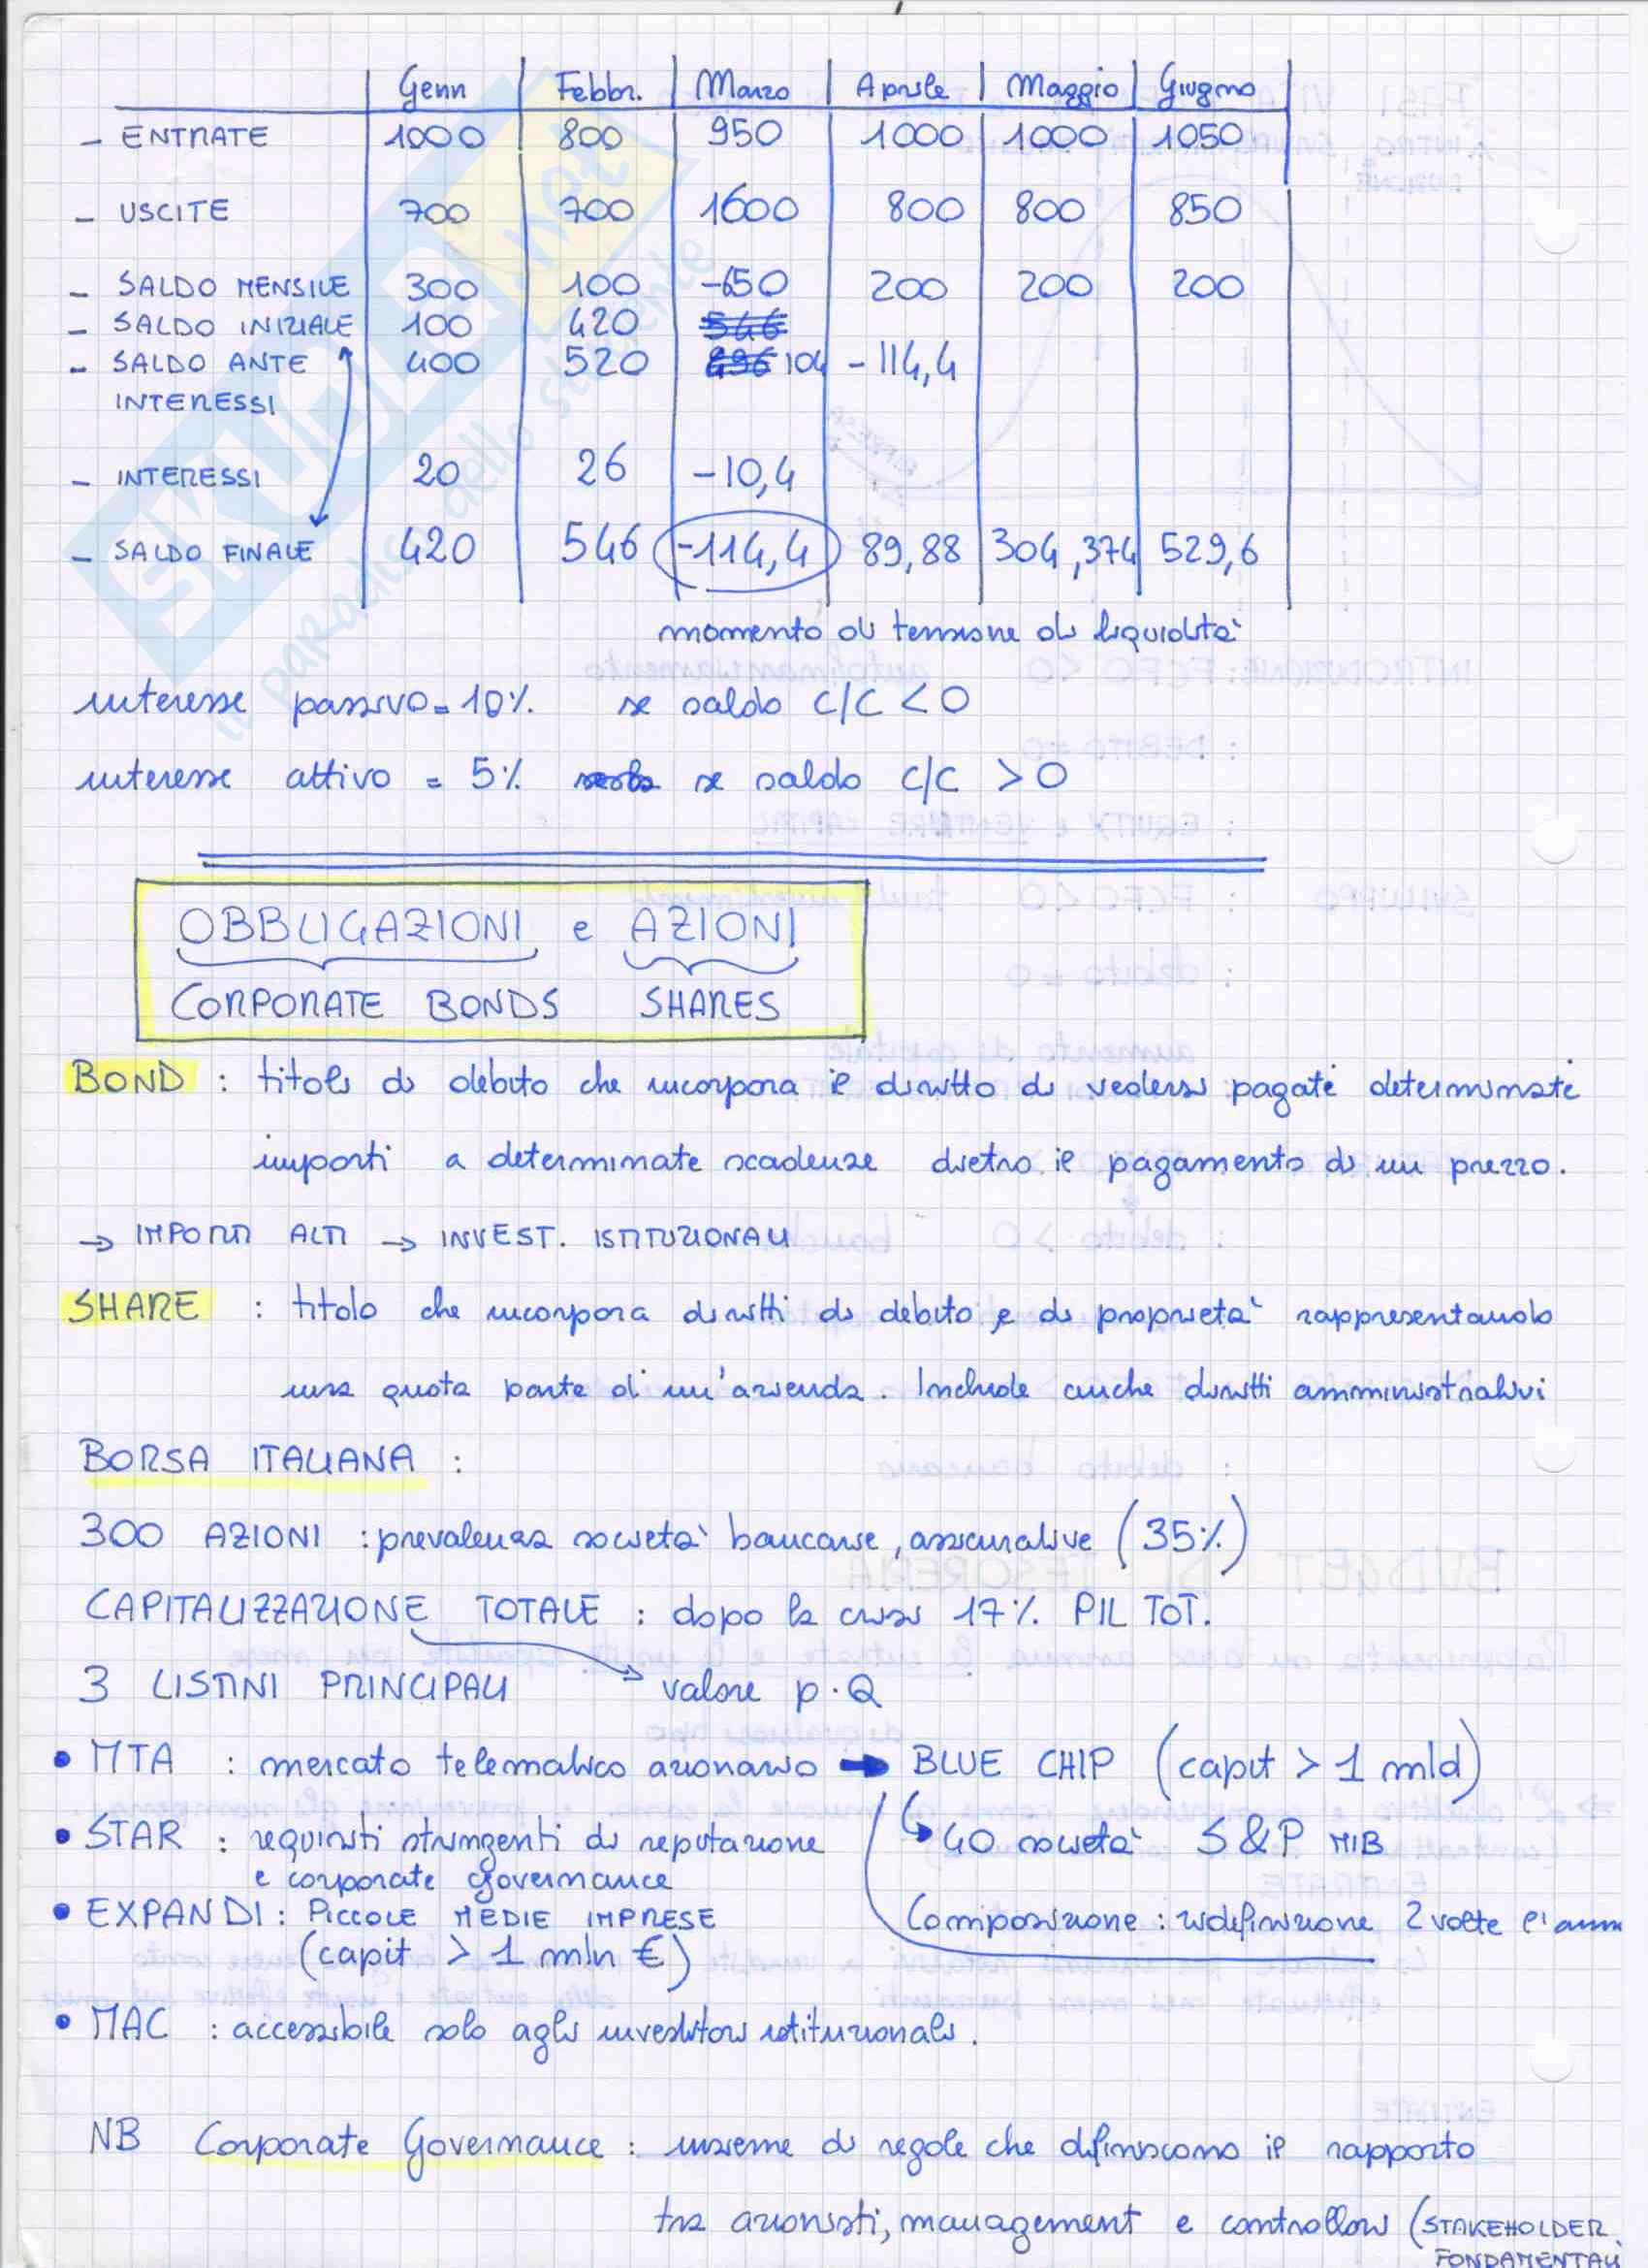 Genn Febbr. Marzo Aprile Maggio Giugno
- ENTRATE 1000 800 950 1000 1000 1050
- USCITE 700 700 1600 800 800 850
- SALDO MENSILE 300 100 -650 200 200 200
- SALDO INIZIALE 100 420 546
- SALDO ANTE 400 520 104 - 114,4
INTERESSI
- INTERESSI 20 26 -10,4
- SALDO FINALE 420 546 -114,4 89,88 304,374 529,6
momento di tensione di liquidità
interesse passivo = 10% se saldo C/C < 0
interesse attivo = 5% se saldo C/C > 0
OBBLIGAZIONI e AZIONI
CORPORATE BONDS SHARES
BOND : titolo di debito che incorpora il diritto di vedersi pagate determinate
importi a determinate scadenze dietro il pagamento di un prezzo.
→ IMPORTI ALTI → INVEST. ISTITUZIONALI
SHARE : titolo che incorpora diritti di debito e di proprietà rappresentando
una quota parte di un'azienda. Include anche diritti amministrativi
BORSA ITALIANA :
300 AZIONI : prevalenza società bancarie, assicurative (35%)
CAPITALIZZAZIONE TOTALE : dopo la crisi 17% PIL TOT.
3 LISTINI PRINCIPALI → valore p·Q
• MTA : mercato telematico azionario → BLUE CHIP (capit > 1 mld)
• STAR : requisiti stringenti di reputazione ↳ 40 società S&P MIB
e corporate governance
• EXPANDI : PICCOLE MEDIE IMPRESE Composizione : ridefinizione 2 volte l'anno
(capit > 1 mln €)
• MAC : accessibile solo agli investitori istituzionali.
NB Corporate Governance : insieme di regole che definiscono il rapporto
tra azionisti, management e controllori (STAKEHOLDER
FONDAMENTALI
SKUOLA.net
il paradiso dello studente